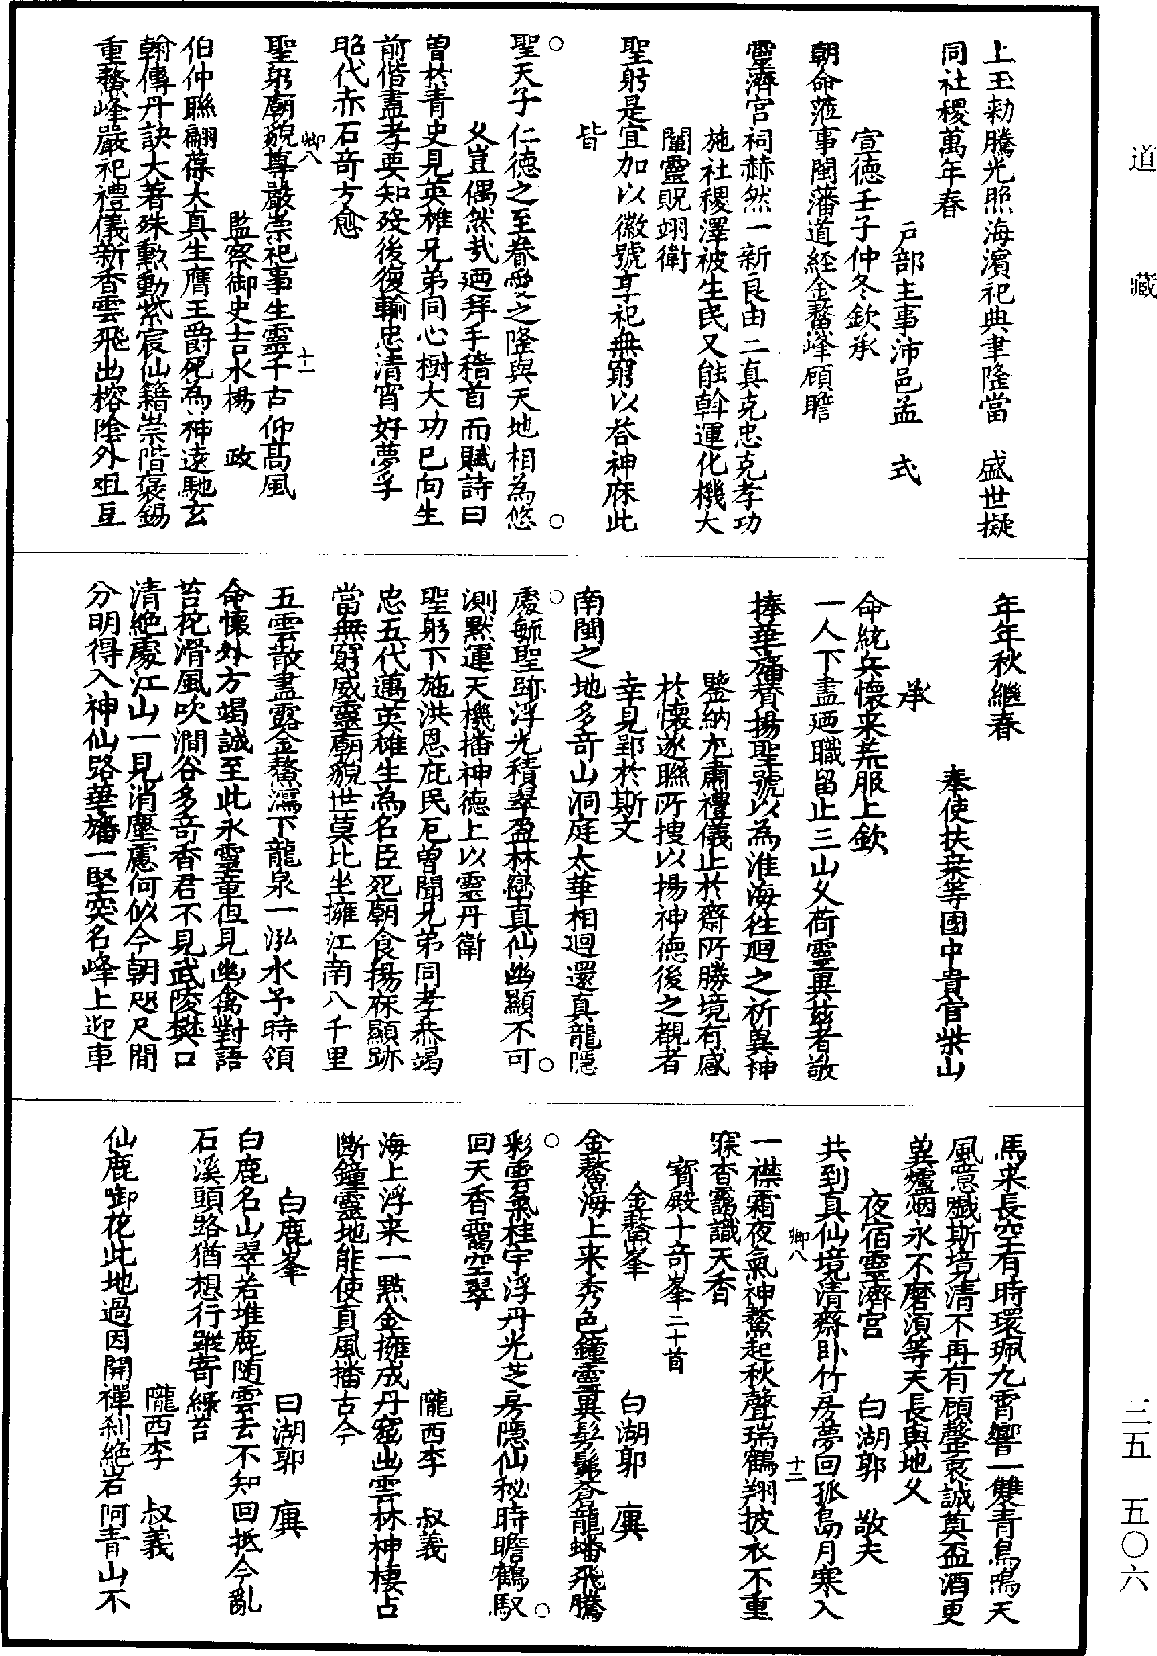 道藏
上玉勑騰光照海濵祀典聿隆當　盛世擬
同社稷萬年春
戶部主事沛邑孟　式
宣德壬子仲冬欽承
朝命蒞事閩藩道經金鰲峰顧瞻
靈濟宮祠赫然一新良由二真克忠克孝功
施社稷澤被生民又能斡運化機大
闡靈貺翊衛
聖躬是宜加以徽號享祀無窮以荅神庥此
皆
聖天子仁德之至眷愛之隆與天地相為悠
久豈偶然㢤廼拜手稽首而賦詩曰
曽於青史見英雄兄弟同心樹大功已向生
前偕盡孝要知歿後復輸忠清宵好夢孚
昭代赤石奇方愈
聖躬廟貌尊嚴崇祀事生靈千古仰高風
御八　十一
監察御史吉水楊　政
伯仲聯翩葆大真生膺王爵死為神逺馳玄
翰傳丹訣大著殊勲動紫宸仙籍崇階褒錫
重鰲峰嚴祀禮儀新香雲飛出榕陰外爼豆
年年秋繼春
奉使扶桒等國中貴官柴山
承
命統兵懷来荒服上欽
一人下盡廼職留止三山乆荷靈異兹者敬
捧華旛賛揚聖號以為淮海徃廻之祈與神
鑒納尤肅禮儀止於齋所勝境有感
於懷遂聯所搜以揚神德後之覩者
幸見郢於斯文
南閩之地多奇山洞庭太華相迴還真龍隱
處毓聖跡浮光積翠盈林巒真仙幽顯不可
測黙運天機播神德上以靈丹衛
聖躬下施洪恩庇民厄曽聞兄弟同孝恭竭
忠五代邁英雄生為名臣死朝食揚庥顯跡
當無窮威靈廟貌世莫比坐擁江南八千里
五雲散盡露金鰲瀉下龍泉一泓水予時領
命懷外方竭誠至此永靈童但見幽禽對語
苔花滑風吹澗谷多奇香君不見武陵樊口
清絶處江山一見消塵慮何似今朝咫尺間
分明得入神仙路華旛一堅突名峰上迎車
馬来長空有時環珮九霄響一雙青鳥鳴天
風意㦧斯境清不再有願整衷誠奠盃酒更
異爐烟永不磨湏等天長與地乆
夜宿靈濟宮　　白湖郭　敬夫
共到真仙境清齋卧竹房夢回孤島月寒入
御八　十二
一襟霜夜氣神鰲起秋聲瑞鶴翔披衣不重
寐杳靄識天香
寳殿十竒峯二十首
金鰲峯　　白湖郭　廙
金鰲海上来秀色鍾靈異髣髴蒼龍蟠飛騰
彩雲氣桂宇浮丹光芝房隱仙秘時瞻鶴馭
回天香靄空翠
隴西李　叔義
海上浮来一㸃金擁成丹窟出雲林神棲占
斷鍾靈地能使真風播古今
白鹿峯　　曰湖郭　廙
白鹿名山翠若堆鹿随雲去不知回抵今亂
石溪頭路猶想行蹤寄緑苔
隴西李　叔義
仙鹿御花此地過因開禪刹絶岩阿青山不
三五　五〇六